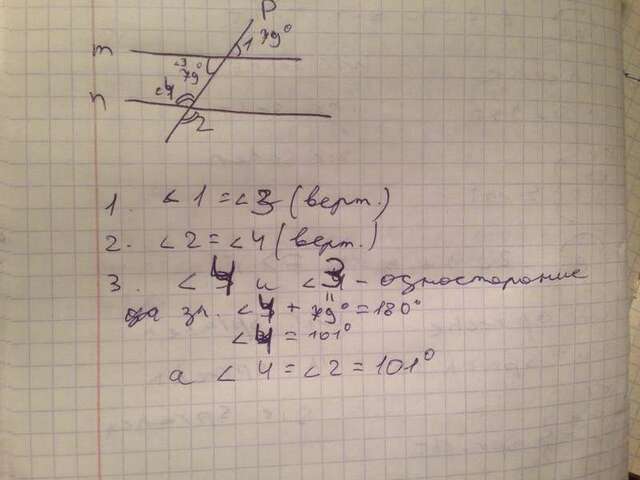 m
n
p
1 79°
∠3
79°
∠4
2
1. ∠1=∠3 (верт.)
2. ∠2=∠4 (верт.)
3. ∠4 и ∠3 - односторонние
∠4 + 79° = 180°
∠4 = 101°
а ∠4 = ∠2 = 101°